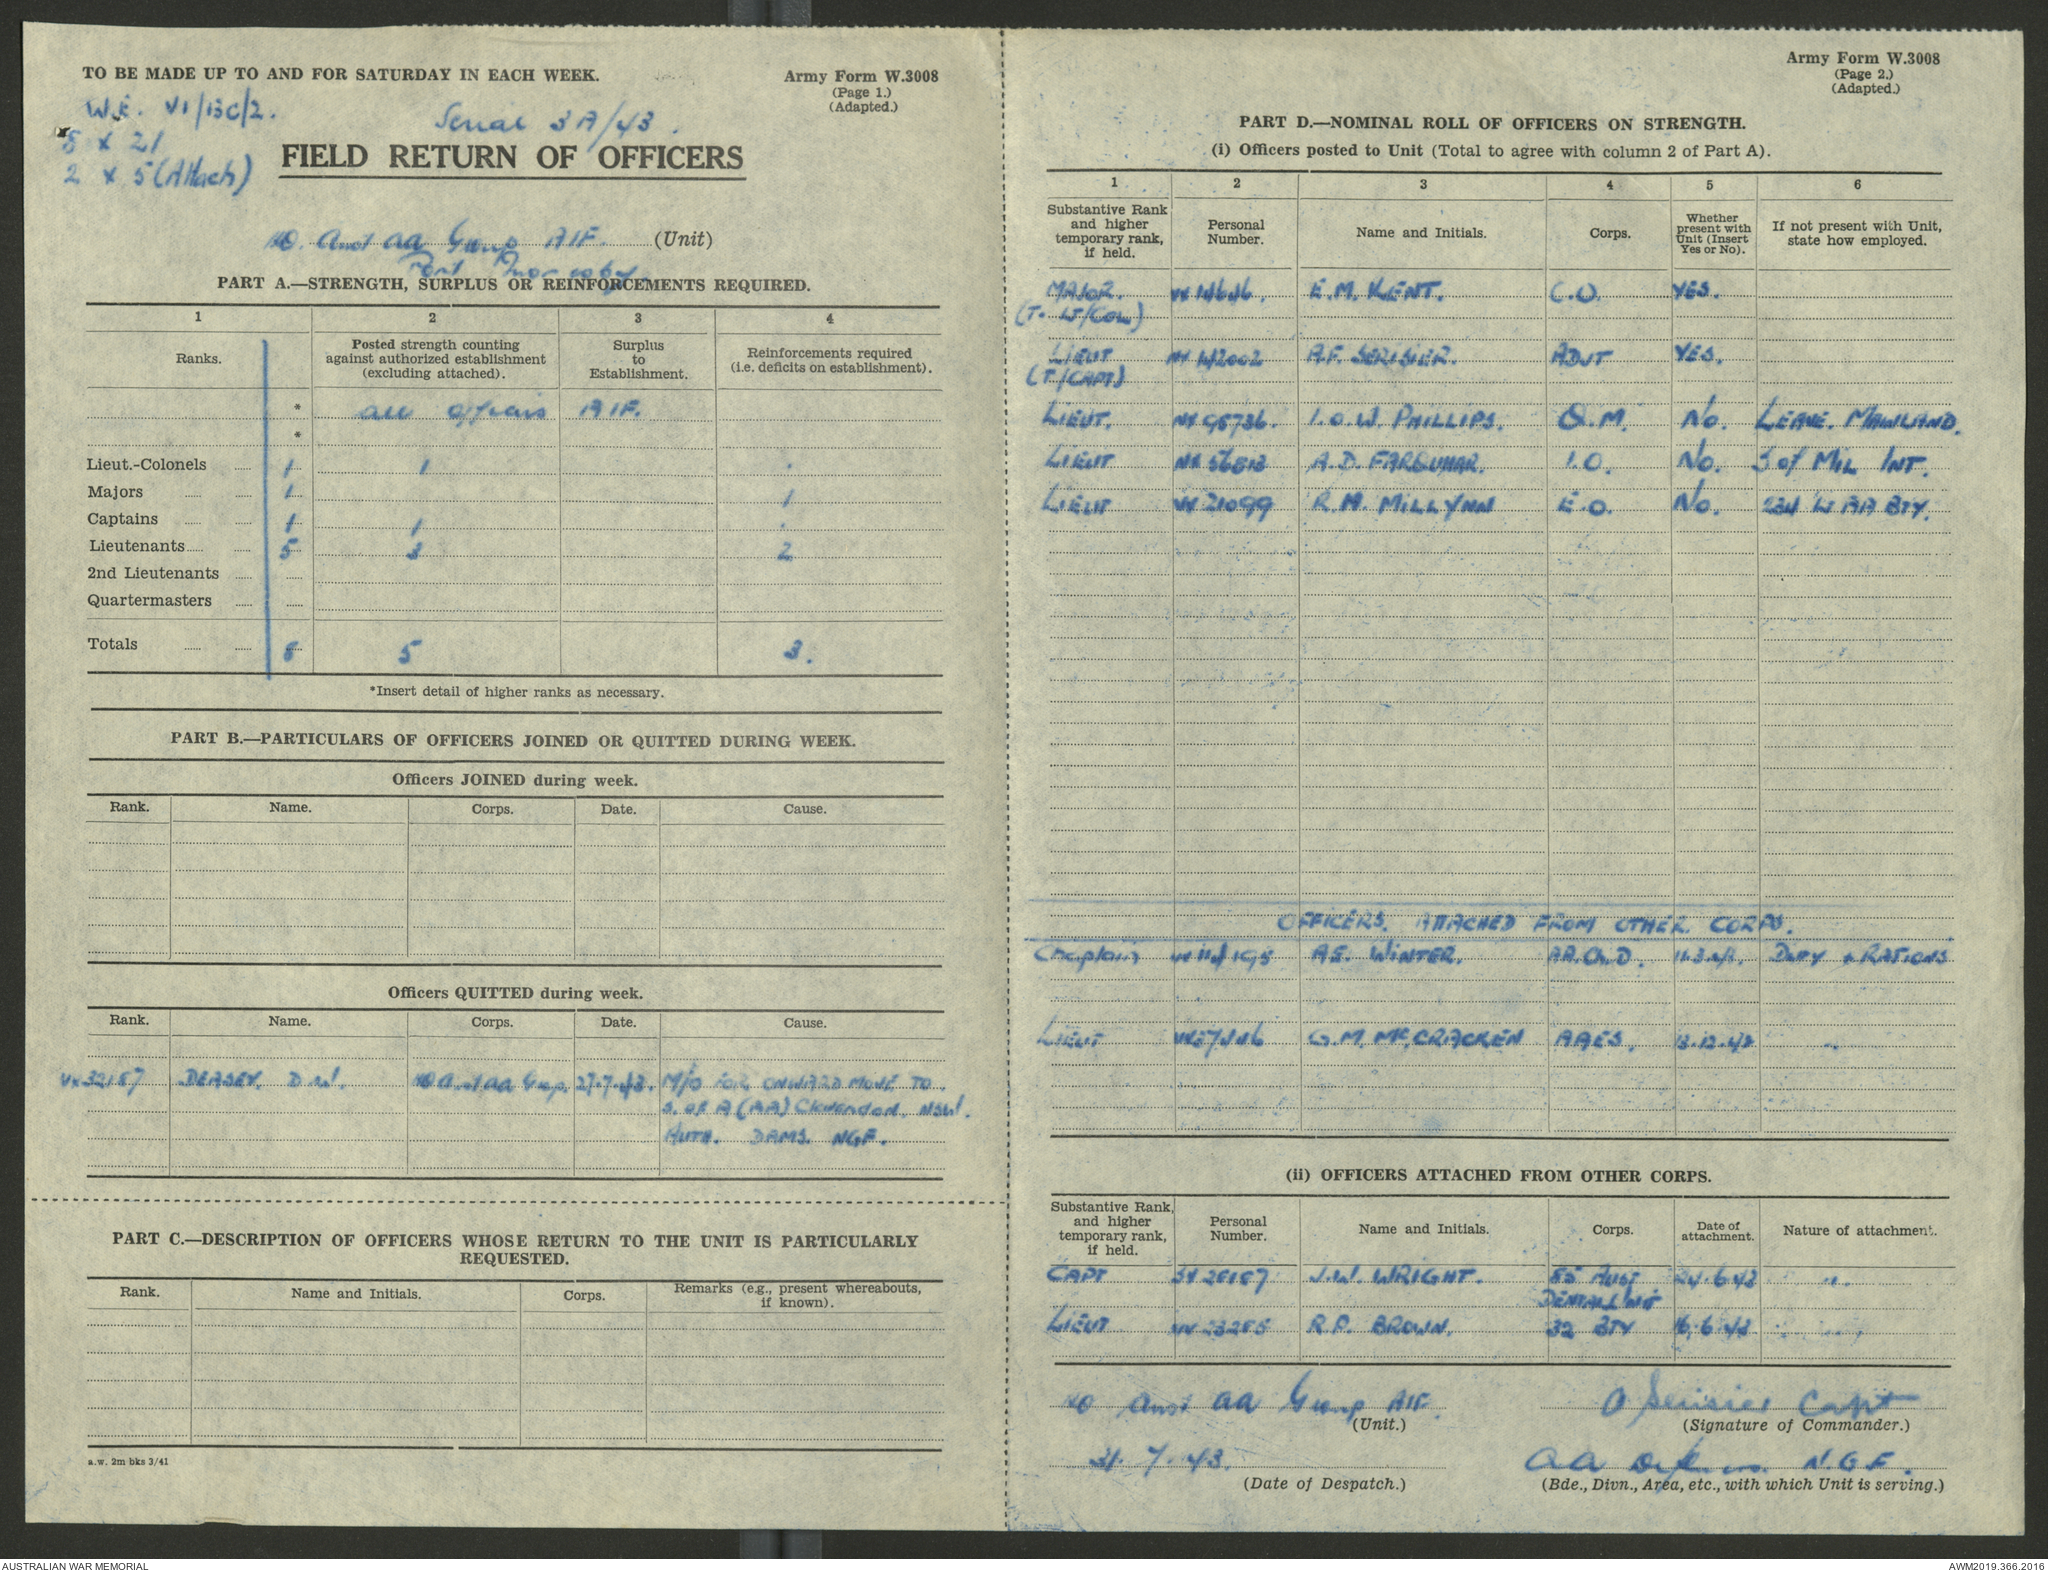 TO BE MADE UP TO AND FOR SATURDAY IN EACH WEEK.
Army Form W.3008
(Page 1.)
(Adapted.)
W.E. VI/13C/2.
Serial 3A/43.
8 x 21
2 x 5 (Attach)
FIELD RETURN OF OFFICERS
HQ. Aust AA Group AIF. (Unit)
Port Moresby.
PART A.—STRENGTH, SURPLUS OR REINFORCEMENTS REQUIRED.
1 2 3 4
Ranks. Posted strength counting against authorized establishment (excluding attached). Surplus to Establishment. Reinforcements required (i.e. deficits on establishment).
* all officers AIF.
*
Lieut.-Colonels 1 1 .
Majors 1 1
Captains 1 1 .
Lieutenants 5 3 2
2nd Lieutenants
Quartermasters
Totals 8 5 3.
*Insert detail of higher ranks as necessary.
PART B.—PARTICULARS OF OFFICERS JOINED OR QUITTED DURING WEEK.
Officers JOINED during week.
Rank. Name. Corps. Date. Cause.
Officers QUITTED during week.
Rank. Name. Corps. Date. Cause.
VX32187 DEASEY. D.W. HQ Aust AA Group. 27.7.43. M/O FOR ONWARD MOVE TO
S. OF A (AA) Clarendon. NSW.
AUTH. DAMS. NGF.
PART C.—DESCRIPTION OF OFFICERS WHOSE RETURN TO THE UNIT IS PARTICULARLY
REQUESTED.
Rank. Name and Initials. Corps. Remarks (e.g., present whereabouts, if known).
a.w. 2m bks 3/41
Army Form W.3008
(Page 2.)
(Adapted.)
PART D.—NOMINAL ROLL OF OFFICERS ON STRENGTH.
(i) Officers posted to Unit (Total to agree with column 2 of Part A).
1 2 3 4 5 6
Substantive Rank and higher temporary rank, if held. Personal Number. Name and Initials. Corps. Whether present with Unit (Insert Yes or No). If not present with Unit, state how employed.
MAJOR. E.M. KENT. C.O. YES.
(T. LT/COL)
LIEUT A.F. SERISIER. ADJT YES.
(T/CAPT)
LIEUT. NX95736. I.O.W. PHILLIPS. Q.M. No. LEAVE. MAINLAND.
LIEUT A.D. FARQUHAR. I.O. No. S of MIL INT.
LIEUT VX21099 R.M. MILLYNN E.O. No. 234 LT AA BTY.
OFFICERS. ATTACHED FROM OTHER CORPS.
Chaplain A.E. WINTER. DUTY & RATIONS
LIEUT G.M. McCRACKEN AAES. 13.12.42 "
(ii) OFFICERS ATTACHED FROM OTHER CORPS.
Substantive Rank, and higher temporary rank, if held. Personal Number. Name and Initials. Corps. Date of attachment. Nature of attachment.
CAPT SX28187 J.W. WRIGHT. 85 AUST 24.6.43 " .
DENTAL UNIT
LIEUT R.P. BROWN. 32 BTY 16.6.43 " "
HQ Aust AA Group AIF.
(Unit.)
A Serisier Capt
(Signature of Commander.)
31.7.43.
(Date of Despatch.)
AA Defences N.G.F.
(Bde., Divn., Area, etc., with which Unit is serving.)
AUSTRALIAN WAR MEMORIAL
AWM2019.366.2016